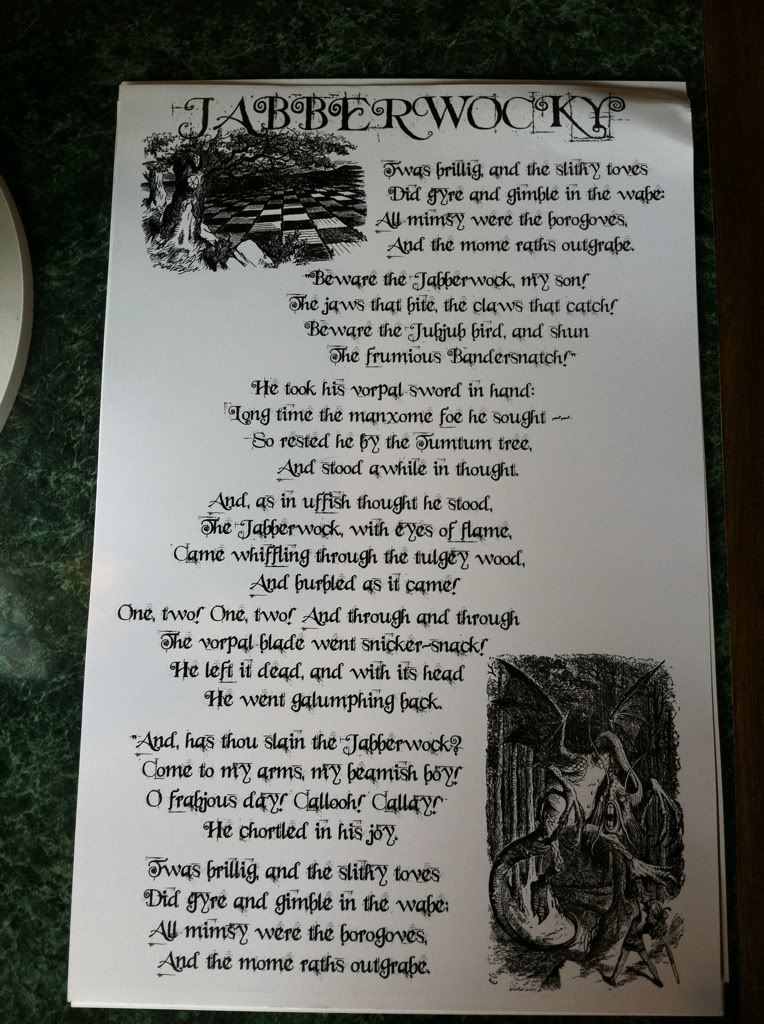 JABBERWOCKY
Twas brillig, and the slithy toves
Did gyre and gimble in the wabe:
All mimsy were the borogoves,
And the mome raths outgrabe.
"Beware the Jabberwock, my son!
The jaws that bite, the claws that catch!
Beware the Jubjub bird, and shun
The frumious Bandersnatch!"
He took his vorpal sword in hand:
Long time the manxome foe he sought --
So rested he by the Tumtum tree,
And stood awhile in thought.
And, as in uffish thought he stood,
The Jabberwock, with eyes of flame,
Came whiffling through the tulgey wood,
And burbled as it came!
One, two! One, two! And through and through
The vorpal blade went snicker-snack!
He left it dead, and with its head
He went galumphing back.
"And, has thou slain the Jabberwock?
Come to my arms, my beamish boy!
O frabjous day! Callooh! Callay!
He chortled in his joy.
Twas brillig, and the slithy toves
Did gyre and gimble in the wabe;
All mimsy were the borogoves,
And the mome raths outgrabe.